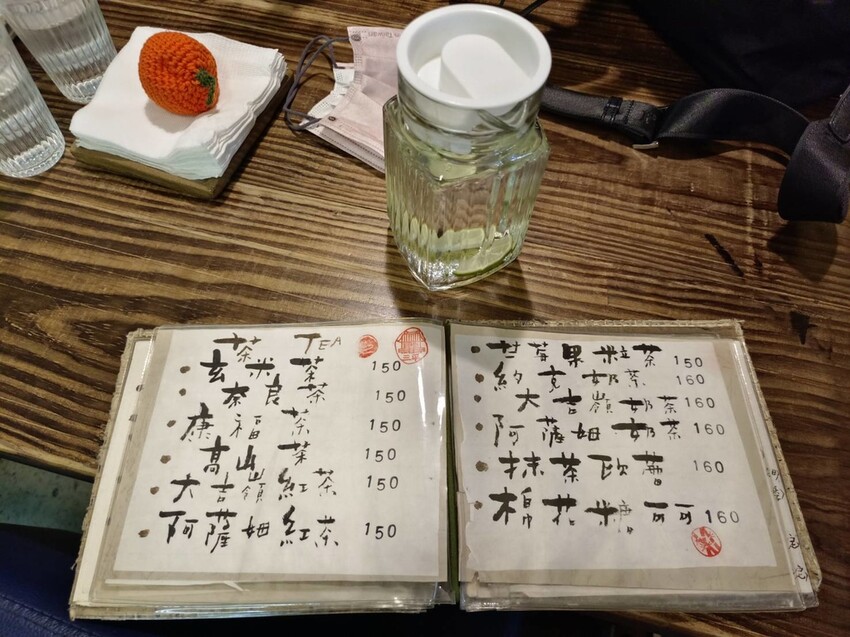 茶 TEA
玄米茶 150
奈良茶 150
康福茶 150
高山茶 150
大吉嶺紅茶 150
阿薩姆紅茶 150
果粒茶 150
約克奶茶 160
大吉嶺奶茶 160
阿薩姆奶茶 160
抹茶歐蕾 160
棉花糖可可 160